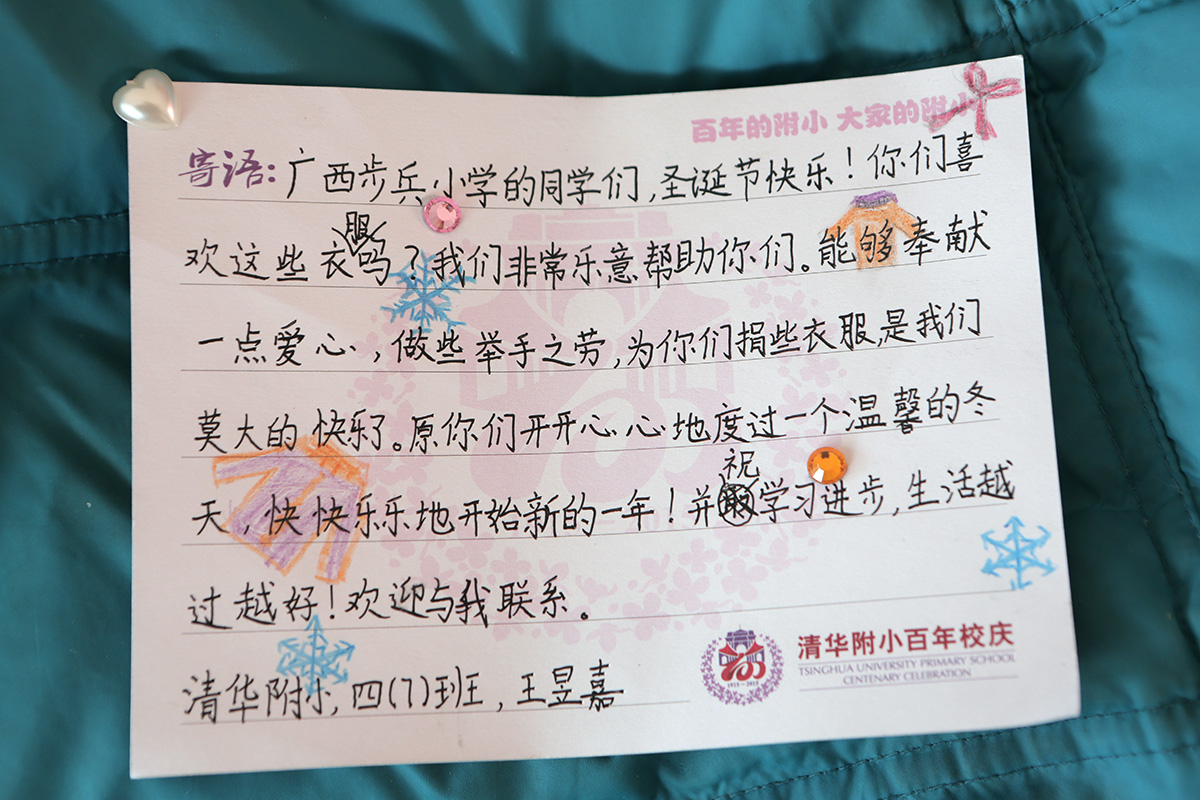 百年的附小 大家的附小
寄语:广西步兵小学的同学们,圣诞节快乐!你们喜
欢这些衣服吗?我们非常乐意帮助你们。能够奉献
一点爱心,做些举手之劳,为你们捐些衣服,是我们
莫大的快乐了。原你们开开心心地度过一个温馨的冬
天,快快乐乐地开始新的一年!并祝学习进步,生活越
过越好!欢迎与我联系。
清华附小,四(7)班,王昱嘉
1915-2015
清华附小百年校庆
TSINGHUA UNIVERSITY PRIMARY SCHOOL
CENTENARY CELEBRATION